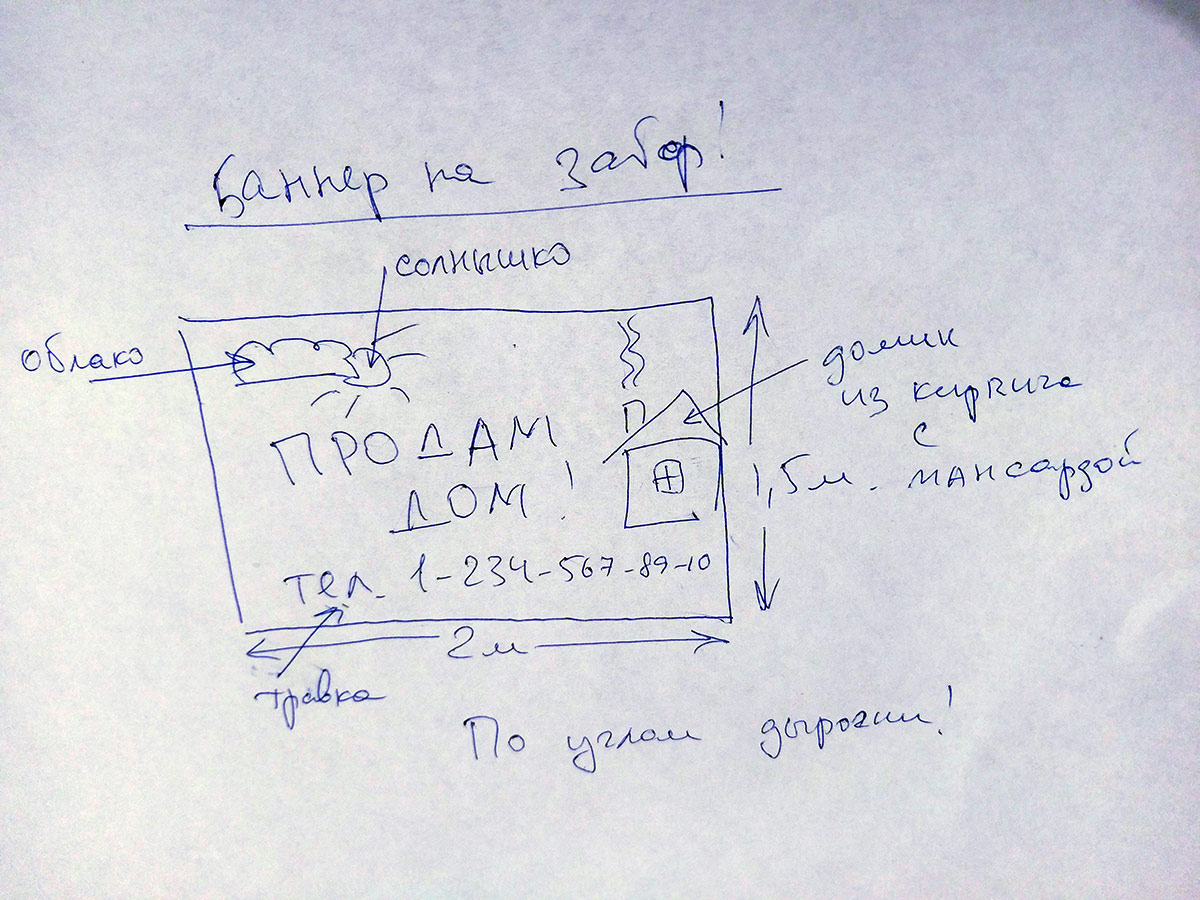 Баннер на забор!
солнышко
облако
домик
из кирпича
с
мансардой
ПРОДАМ
ДОМ!
1,5м.
тел. 1-234-567-89-10
2м
травка
По углам дырочки!